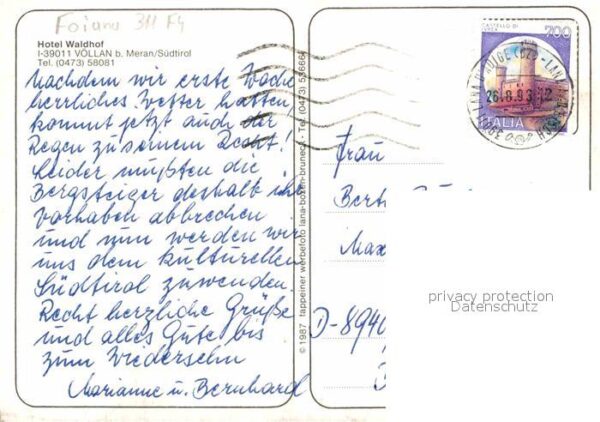 Foiana 311 F4
Hotel Waldhof
I-39011 VÖLLAN b. Meran/Südtirol
Tel. (0473) 58081
Nachdem wir erste Woche
herrliches Wetter hatten,
kommt jetzt auch der
Regen zu seinem Recht!
Leider mußten die
Bergsteiger deshalb ihr
Vorhaben abbrechen
und nun werden wir
uns dem kulturellen
Südtirol zuwenden.
Recht herzliche Grüße
und alles Gute bis
zum Wiedersehn
Marianne u. Bernhard
© 1987 tappeiner werbefoto lana-bozen-bruneck - Tel. (0473) 53666
CASTELLO DI
700
ITALIA
26.8.93
Frau
Max
D-8940
privacy protection
Datenschutz